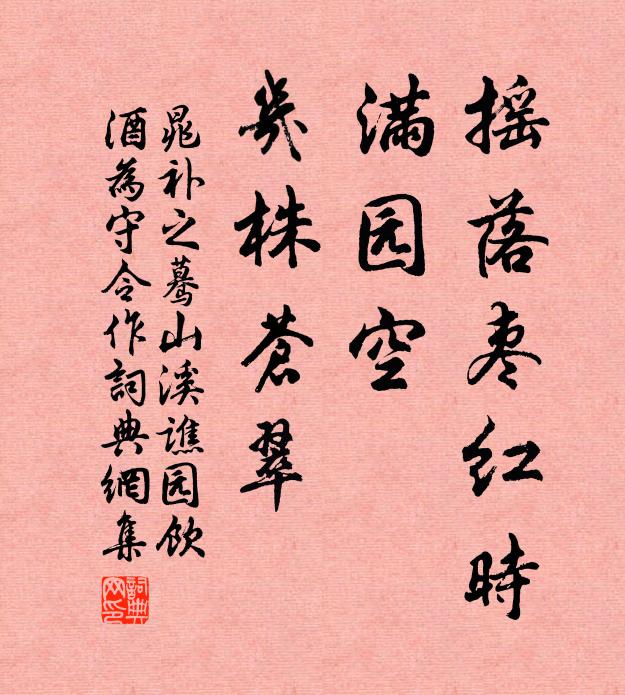 摇落枣红時
满园空
幾株蒼翠
晁补之蓦山溪谯园飲
酒為守令作詞典網集
詞典网印